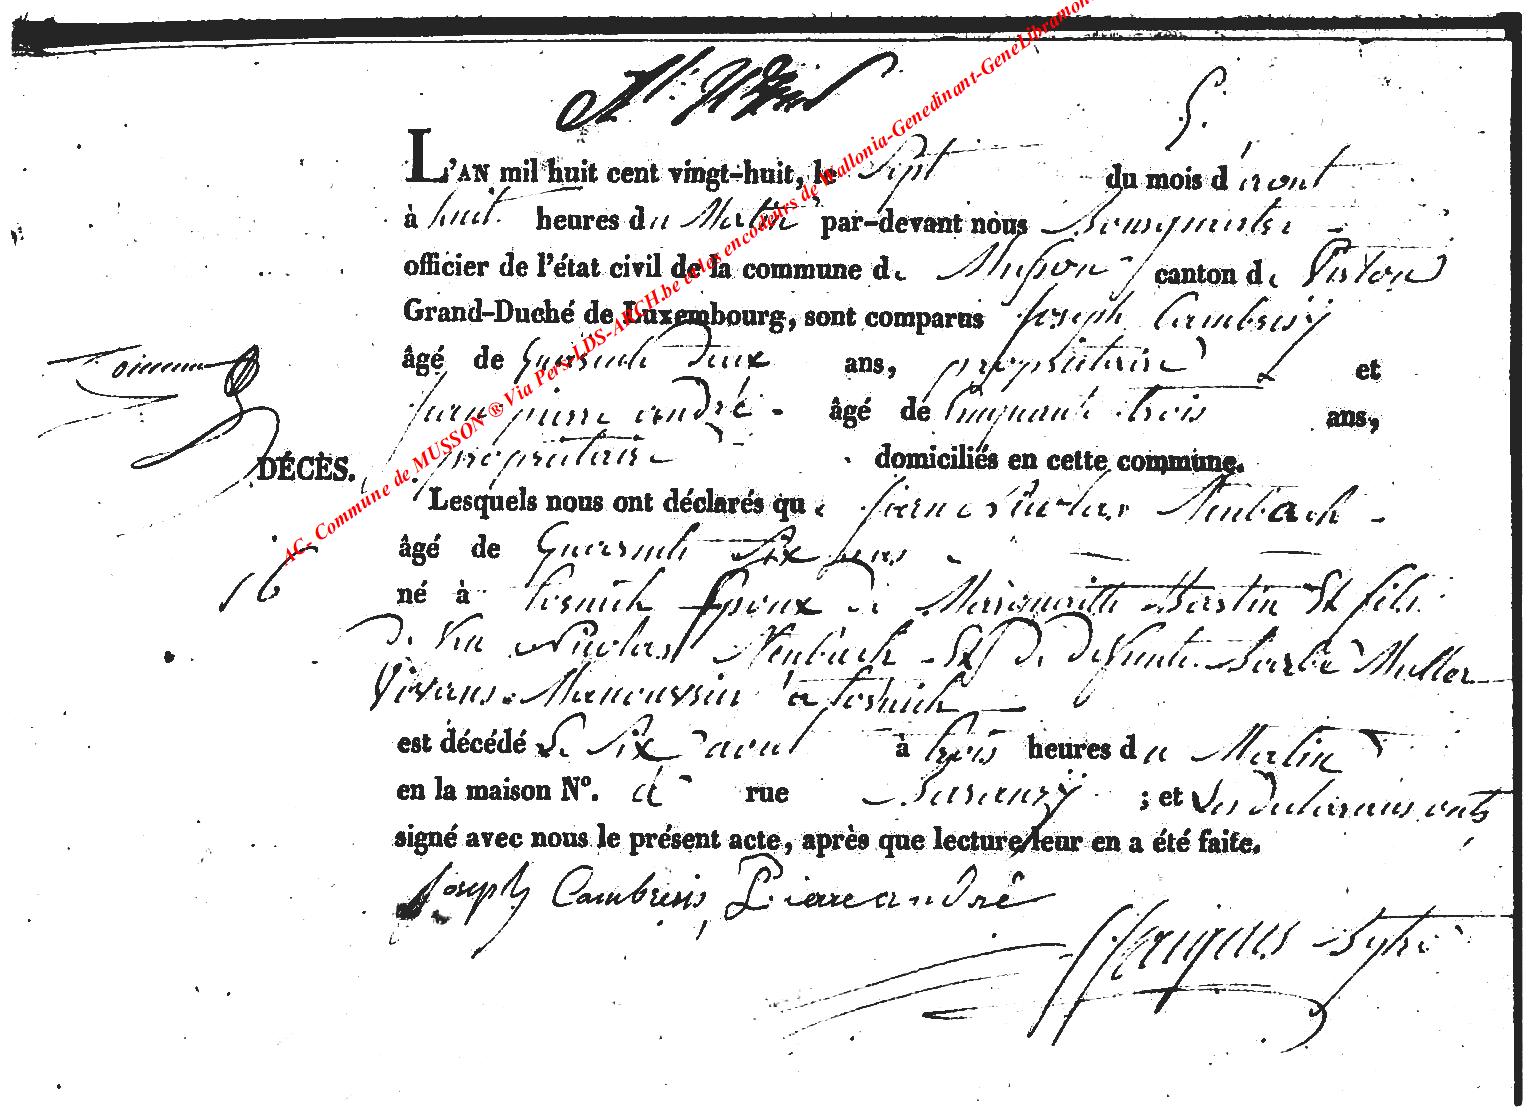 5.
L'AN mil huit cent vingt-huit, le Sept du mois d'aout
à huit heures du Matin par-devant nous Bourgmestre
officier de l'état civil de la commune de Musson canton de Virton
Grand-Duché de Luxembourg, sont comparus Joseph Cambresÿ
âgé de Quarante Deux ans, propriétaire et
jean pierre andré âgé de Cinquante trois ans,
propriétaire domiciliés en cette commune.
DÉCÈS.
Lesquels nous ont déclarés que Nicolas Neubach
âgé de Quarante Six ans
16
né à Epoux de Marguerite Martin Et fils
de feu Nicolas Neubach Et De Defunte Barbe Muller
Vivans à
est décédé Le Six aout à trois heures du Matin
en la maison Nº. de rue Baranzÿ ; et Les Declarans onts
signé avec nous le présent acte, après que lecture leur en a été faite.
Joseph Cambresis Pierre andré
AC- Commune de MUSSON ® Via Pers-LDS-ARCH.be et les encodeurs de Wallonia-Genedinant-GeneLibramon